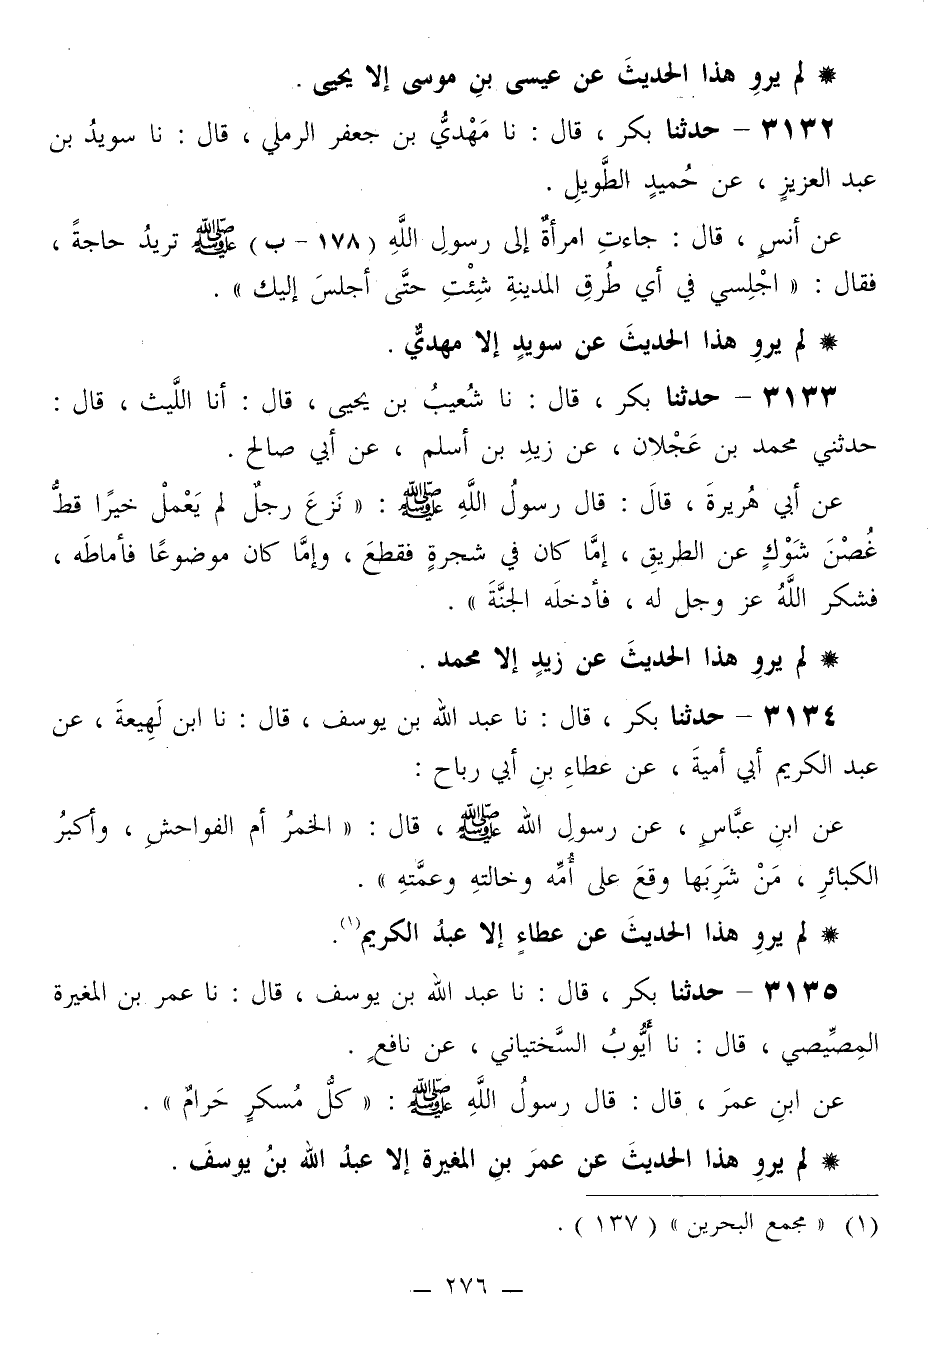 * لم يروِ هذا الحديثَ عن عيسى بنِ موسى إلا يحيى .
٣١٣٢ – حدثنا بكر ، قال : نا مَهْديُّ بن جعفر الرملي ، قال : نا سويدُ بن
عبد العزيزِ ، عن حُميدٍ الطَّويلِ .
عن أنسٍ ، قال : جاءتِ امرأةٌ إلى رسولِ اللَّهِ ( ١٧٨ - ب ) ﷺ تريدُ حاجةً ،
فقال : « اجْلِسي في أي طُرقِ المدينةِ شِئْتِ حتَّى أجلسَ إليك » .
* لم يروِ هذا الحديثَ عن سويدٍ إلا مهديٌّ .
٣١٣٣ – حدثنا بكر ، قال : نا شُعيبُ بن يحيى ، قال : أنا اللَّيث ، قال :
حدثني محمد بن عَجْلان ، عن زيدِ بن أسلم ، عن أبي صالح .
عن أبي هُريرةَ ، قالَ : قال رسولُ اللَّهِ ﷺ : « نَزعَ رجلٌ لم يَعْملْ خيرًا قطُّ
غُصْنَ شَوْكٍ عن الطريقِ ، إمَّا كان في شجرةٍ فقطعَ ، وإمَّا كان موضوعًا فأماطَه ،
فشكر اللَّهُ عز وجل له ، فأدخلَه الجنَّةَ » .
* لم يروِ هذا الحديثَ عن زيدٍ إلا محمد .
٣١٣٤ – حدثنا بكر ، قال : نا عبد الله بن يوسف ، قال : نا ابن لَهِيعةَ ، عن
عبد الكريم أبي أميةَ ، عن عطاءِ بنِ أبي رباح :
عن ابنِ عبَّاسٍ ، عن رسولِ الله ﷺ ، قال : « الخمرُ أم الفواحشِ ، وأكبرُ
الكبائرِ ، مَنْ شَرِبَها وقعَ على أُمِّه وخالتهِ وعمَّتهِ » .
* لم يروِ هذا الحديثَ عن عطاءٍ إلا عبدُ الكريم(١).
٣١٣٥ – حدثنا بكر ، قال : نا عبد الله بن يوسف ، قال : نا عمر بن المغيرة
المِصِّيصي ، قال : نا أَيُّوبُ السَّختياني ، عن نافعٍ .
عن ابنِ عمرَ ، قال : قال رسولُ اللَّهِ ﷺ : « كلُّ مُسكرٍ حَرامٌ » .
* لم يروِ هذا الحديثَ عن عمرَ بنِ المغيرة إلا عبدُ الله بنُ يوسفَ .
(١) « مجمع البحرين » ( ١٣٧ ) .
– ٢٧٦ –